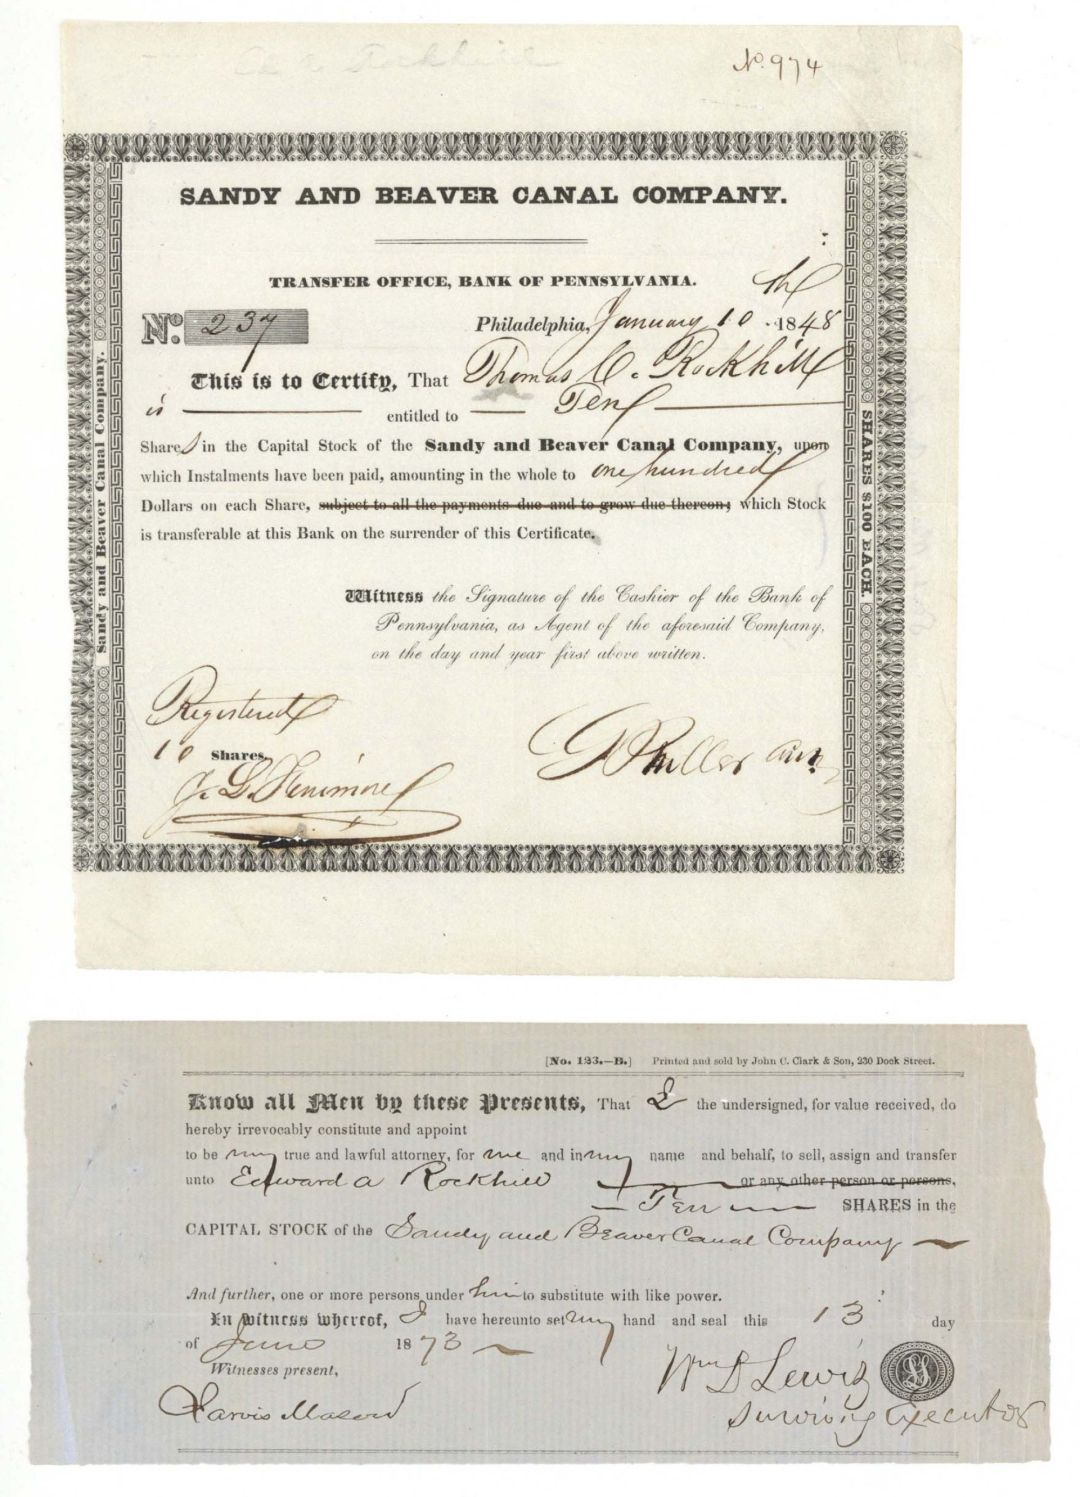 No. 974
SANDY AND BEAVER CANAL COMPANY.
TRANSFER OFFICE, BANK OF PENNSYLVANIA.
No. 237
Philadelphia, January 10th 1848
This is to Certify, That Thomas C. Rockhill
is entitled to Ten
Shares in the Capital Stock of the Sandy and Beaver Canal Company, upon
which Instalments have been paid, amounting in the whole to one hundred
Dollars on each Share, subject to all the payments due and to grow due thereon; which Stock
is transferable at this Bank on the surrender of this Certificate.
Witness the Signature of the Cashier of the Bank of
Pennsylvania, as Agent of the aforesaid Company,
on the day and year first above written.
Registered
10 Shares
J. G. Fenimore
Sandy and Beaver Canal Company.
SHARES $100 EACH.
[No. 123.—B.] Printed and sold by John C. Clark & Son, 230 Dock Street.
Know all Men by these Presents, That I the undersigned, for value received, do
hereby irrevocably constitute and appoint
to be my true and lawful attorney, for me and in my name and behalf, to sell, assign and transfer
unto Edward A Rockhill or any other person or persons,
Ten SHARES in the
CAPITAL STOCK of the Sandy and Beaver Canal Company
And further, one or more persons under him to substitute with like power.
In Witness whereof, I have hereunto set my hand and seal this 13 day
of June 1873
Witnesses present,
Jarvis Mason
Wm D Lewis
Surviving Executor